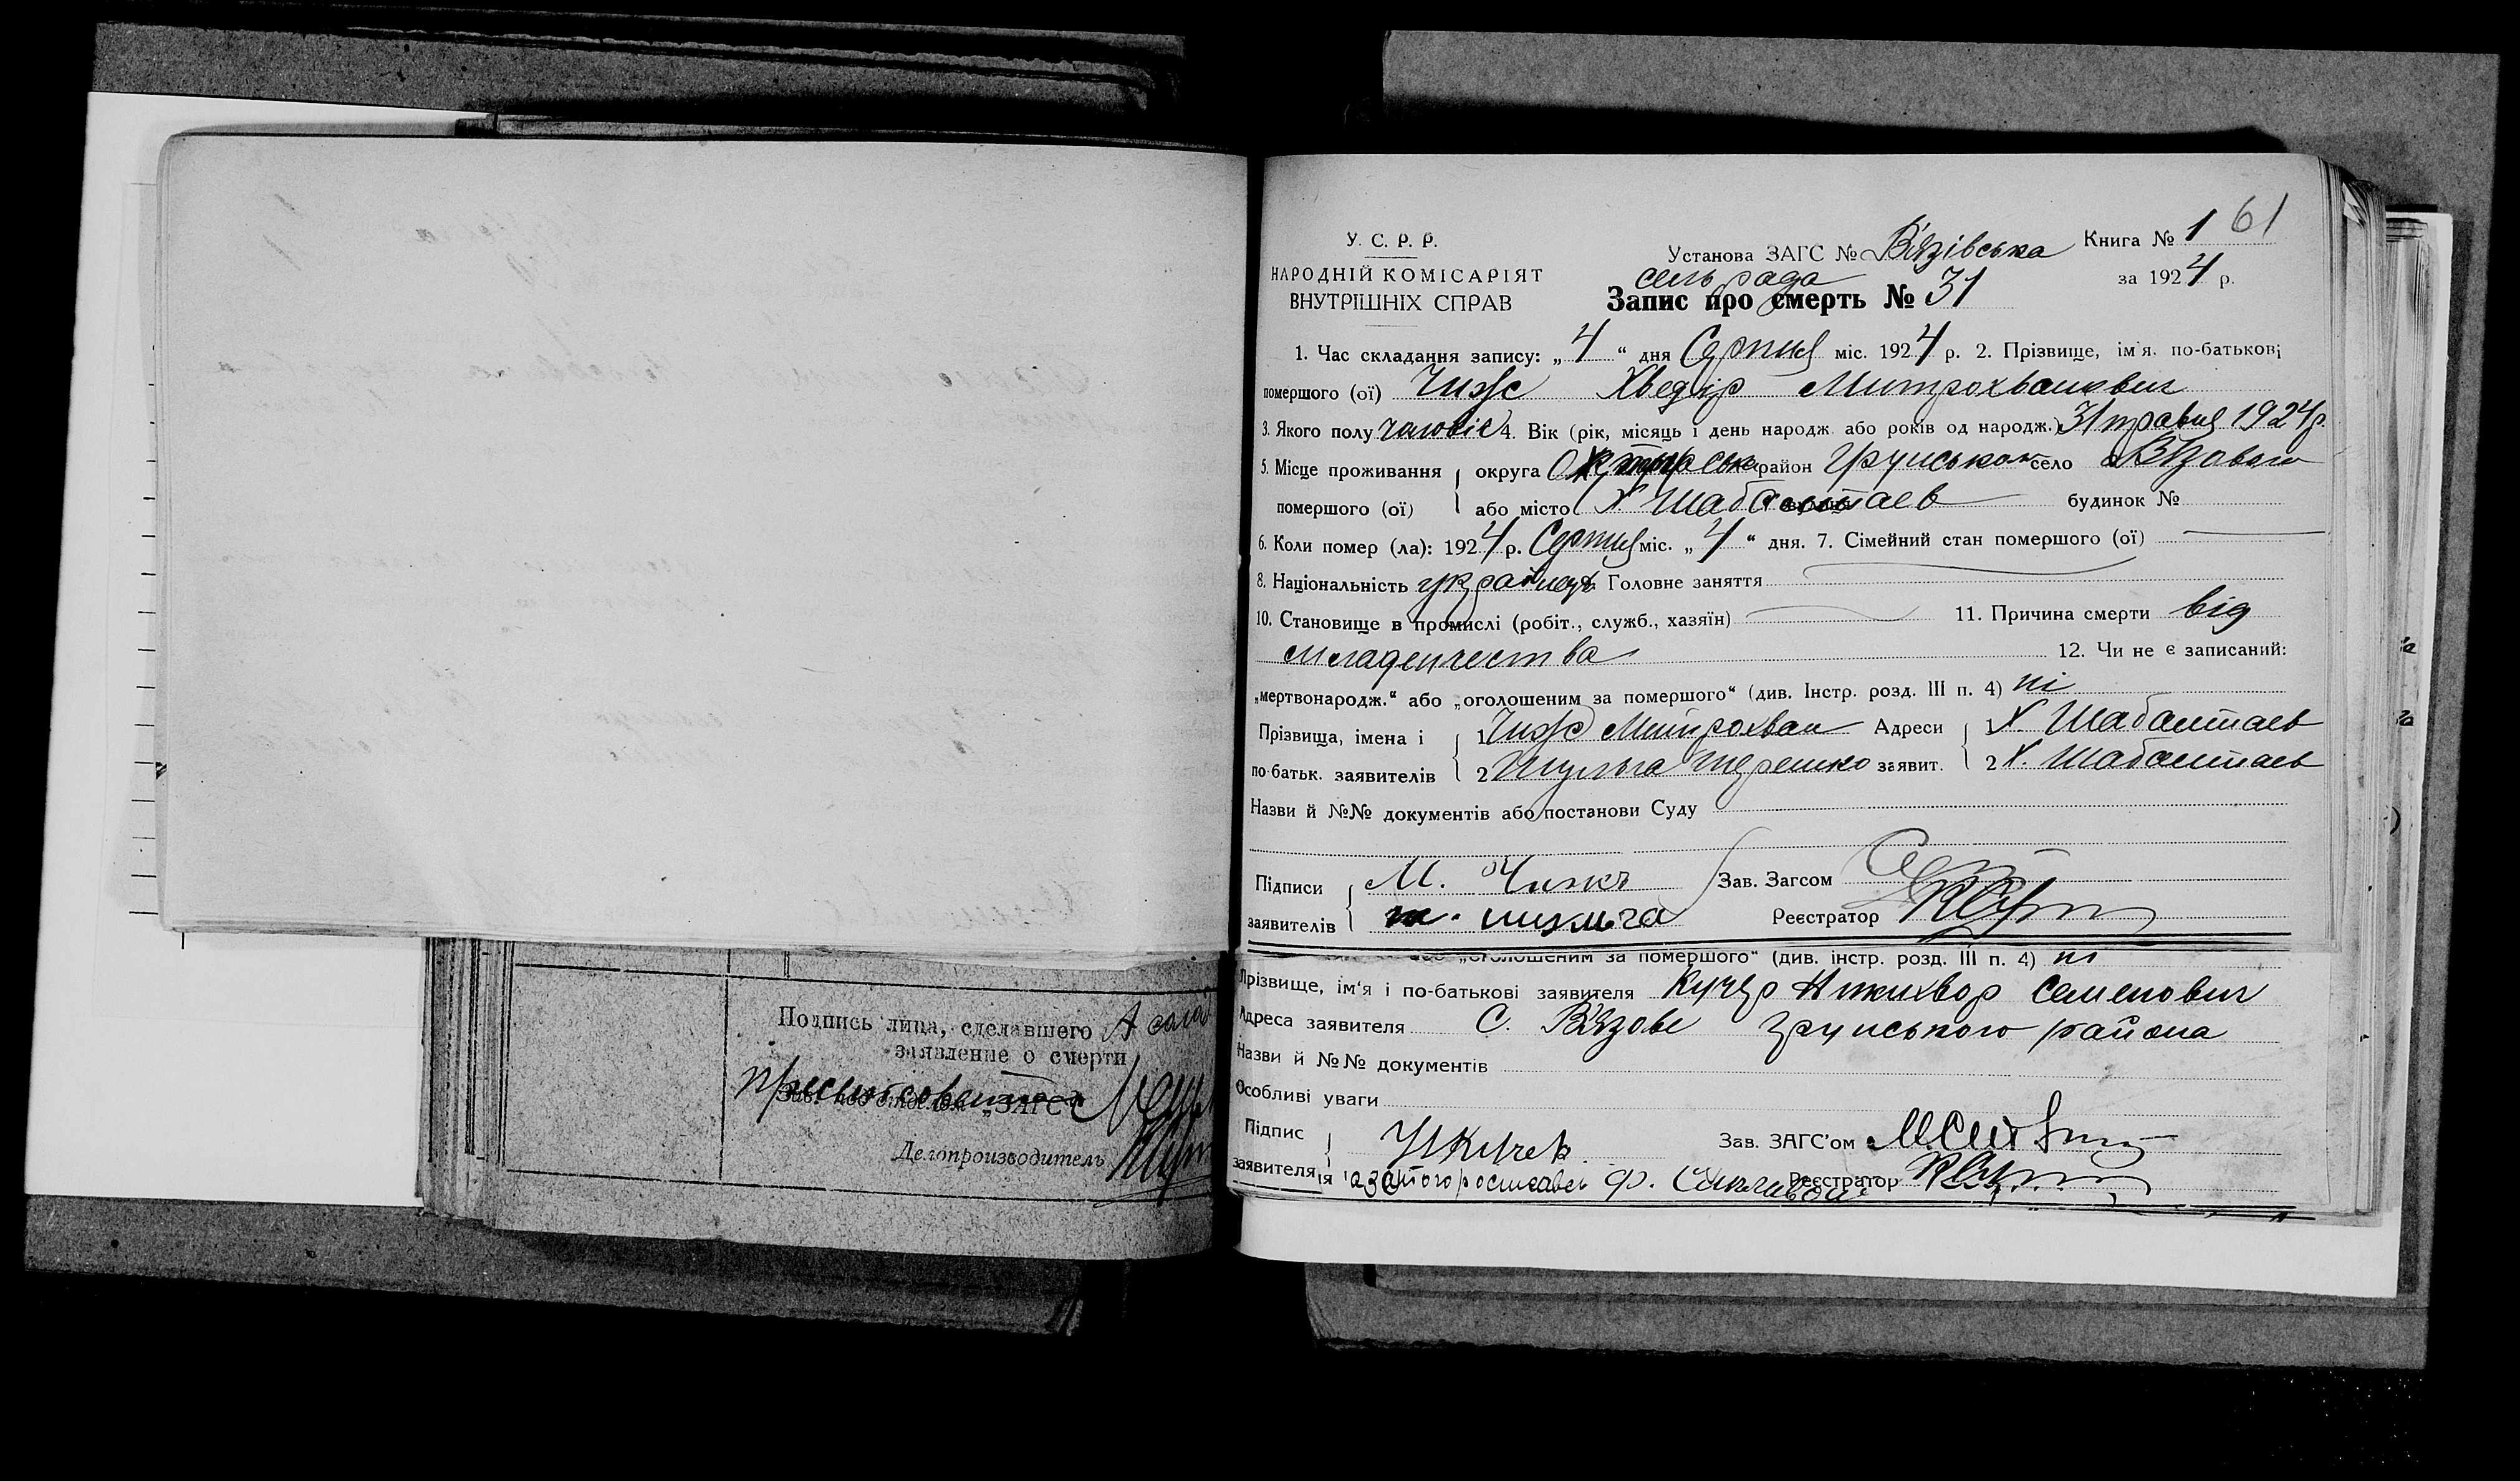 61
У. С. Р. Р.
НАРОДНІЙ КОМІСАРІЯТ
ВНУТРІШНІХ СПРАВ
Установа ЗАГС № Вязівська
сельрада
Книга № 1
за 1924 р.
Запис про смерть № 31
1. Час складання запису: „4“ дня Серпня міс. 1924 р. 2. Прізвище, ім'я, по-батькові
помершого (ої) Чиж Хведір Митрохванович
3. Якого полу чоловіч 4. Вік (рік, місяць і день народж. або років од народж.) 31 травня 1924 р.
5. Місце проживання округа район Грунського село Вязового
помершого (ої) або місто Х. Шабалтаев будинок №
6. Коли помер (ла): 1924 р. Серпня міс. „4“ дня. 7. Сімейний стан помершого (ої)
8. Національність українець Головне заняття
10. Становище в промислі (робіт., служб., хазяїн) 11. Причина смерти від
младенчества 12. Чи не є записаний:
„мертвонародж.“ або „оголошеним за помершого“ (див. Інстр. розд. III п. 4) ні
Прізвища, імена і 1 Чиж Митрохван Адреси 1 Х. Шабалтаев
по-батьк. заявителів 2 Шульга Терешко заявит. 2 Х. Шабалтаев
Назви й №№ документів або постанови Суду
Підписи М. Чижъ Зав. Загсом
заявителів т. шульга Реєстратор
„оголошеним за помершого“ (див. інстр. розд. III п. 4) ні
Прізвище, ім'я і по-батькові заявителя Кучер Никихвор Семенович
Адреса заявителя С. Вязове Грунського района
Назви й №№ документів
Особливі уваги
Підпис Зав. ЗАГС'ом
заявителя Реєстратор
Подпись лица, сделавшего
заявление о смерти
Делопроизводитель